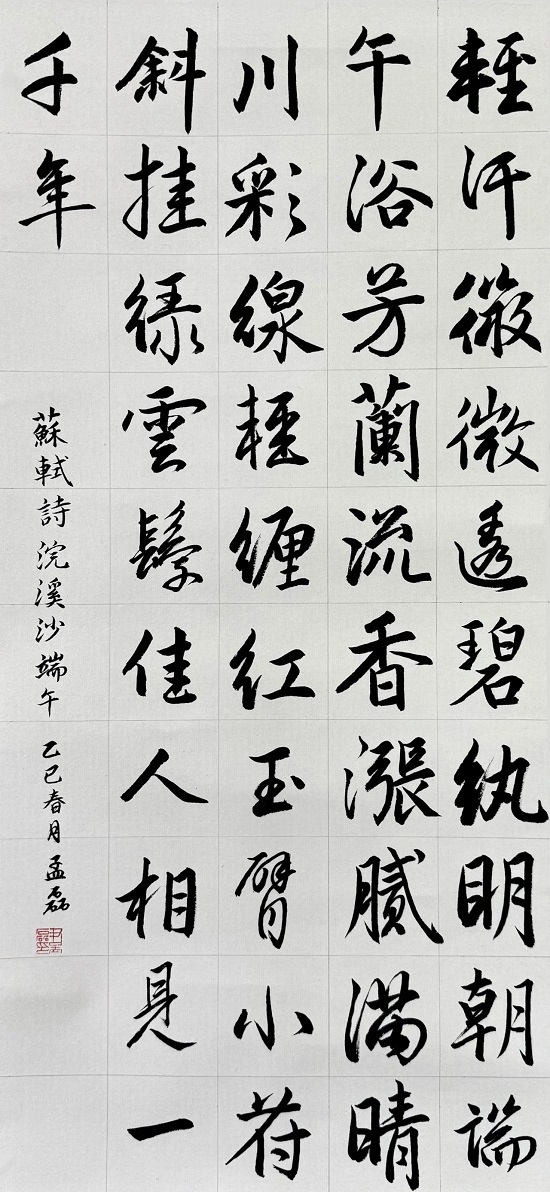 輕汗微微透碧紈明朝端
午浴芳蘭流香漲膩滿晴
川彩線輕緾紅玉臂小符
斜挂綠雲鬟佳人相見一
千年
蘇軾詩浣溪沙端午 乙巳春月孟磊